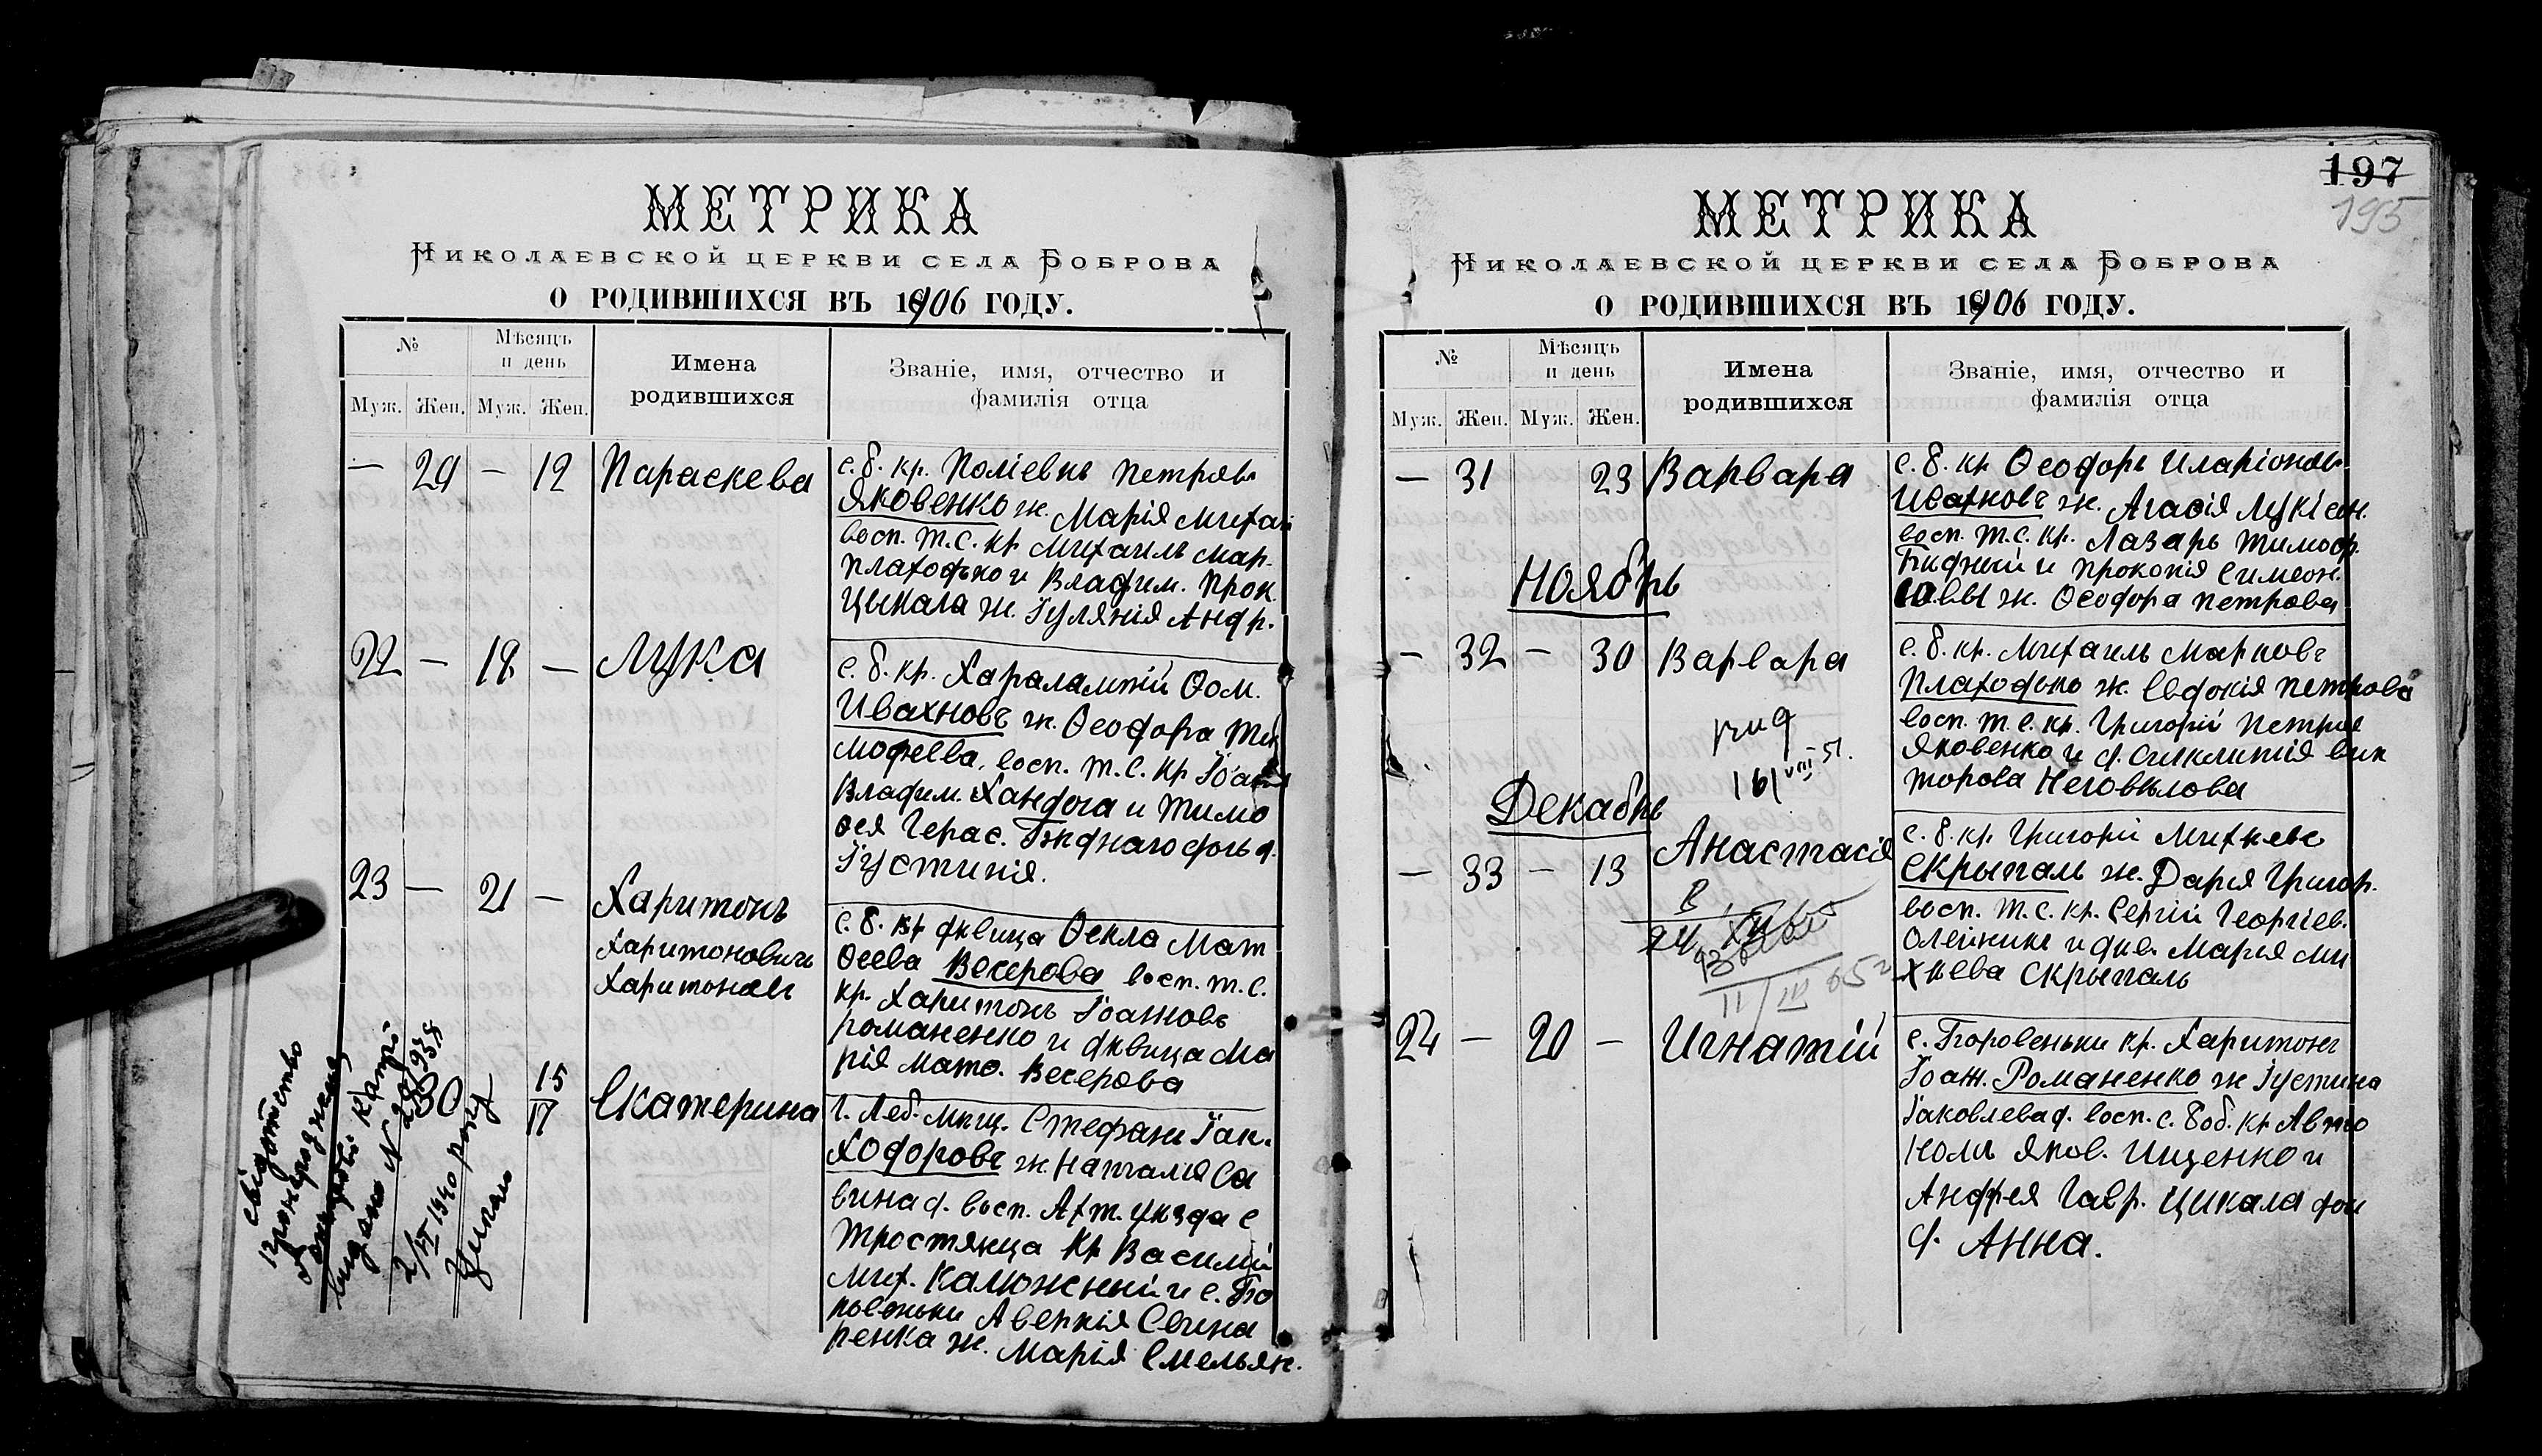 МЕТРИКА
Николаевской церкви села Боброва
О РОДИВШИХСЯ ВЪ 1906 ГОДУ.
№
Мѣсяцъ и день
Имена родившихся
Званіе, имя, отчество и фамилія отца
Муж. Жен. Муж. Жен.
— 29 — 12 Параскева
с. б. кр. Поліевкъ Петровъ
Яковенко ж. Марія Михаи
восп. т. с. кр Михаилъ Мар.
Плаходько и Владим. Прок.
Цыкала ж. Іулянія Андр.
22 — 18 — Лука
с. б. кр. Харалампій Ѳом.
Ивахновъ ж. Ѳеодора Ти
моѳеева, восп. т. с. кр Іоан
Владим. Хандога и Тимо
ѳея Герас. Бѣднаго дочь д.
Іустинія.
23 — 21 — Харитонъ
Харитоновичъ
Харитоновъ
с. б. кр дѣвица Ѳекла Мат
ѳеева Весерова восп. т. с.
кр. Харитонъ Іоанновъ
Романенко и дѣвица Ма
рія Матѳ. Весерова
15
17
Екатерина
г. Леб. мѣщ. Стефанъ Іак.
Ходоровъ ж. Наталія Са
вина д. восп. Ахт. уѣзда с
Тростянца кр Василій
Мих. Калюжный и с. Бо
ровеньки Аверкія Свина
ренка ж. Марія Емельян.
2/VI 1940 року
МЕТРИКА
197
195
Николаевской церкви села Боброва
О РОДИВШИХСЯ ВЪ 1906 ГОДУ.
№
Мѣсяцъ и день
Имена родившихся
Званіе, имя, отчество и фамилія отца
Муж. Жен. Муж. Жен.
— 31 23 Варвара
с. б. кр Ѳеодоръ Иларіоновъ
Ивахновъ ж. Агафія Лукіан.
восп. т. с. кр. Лазарь Тимоѳ.
Бѣдный и Прокопія Симеон.
Саввы ж. Ѳеодора Петрова
Ноябрь
— 32 — 30 Варвара
с. б. кр. Михаилъ Марковъ
Плаходько ж. Евдокія Петрова
восп. т. с. кр. Григорій Петров
Яковенко и д. Синклитія Вик
торова Неговѣлова
161 VIII-51.
Декабрь
— 33 — 13 Анастасія
с. б. кр Григорій Михѣевъ
Скрыпаль ж. Дарія Григор.
восп. т. с. кр. Сергій Георгіев.
Олейникъ и дѣв. Марія Ми
хѣева Скрыпаль
24 — 20 — Игнатій
с. Боровеньки кр. Харитонъ
Іоан. Романенко ж Іустина
Іаковлева д. восп. с. Боб. кр Авто
номъ Яков. Ищенко и
Андрея Гавр. Цикала дочь
д. Анна.